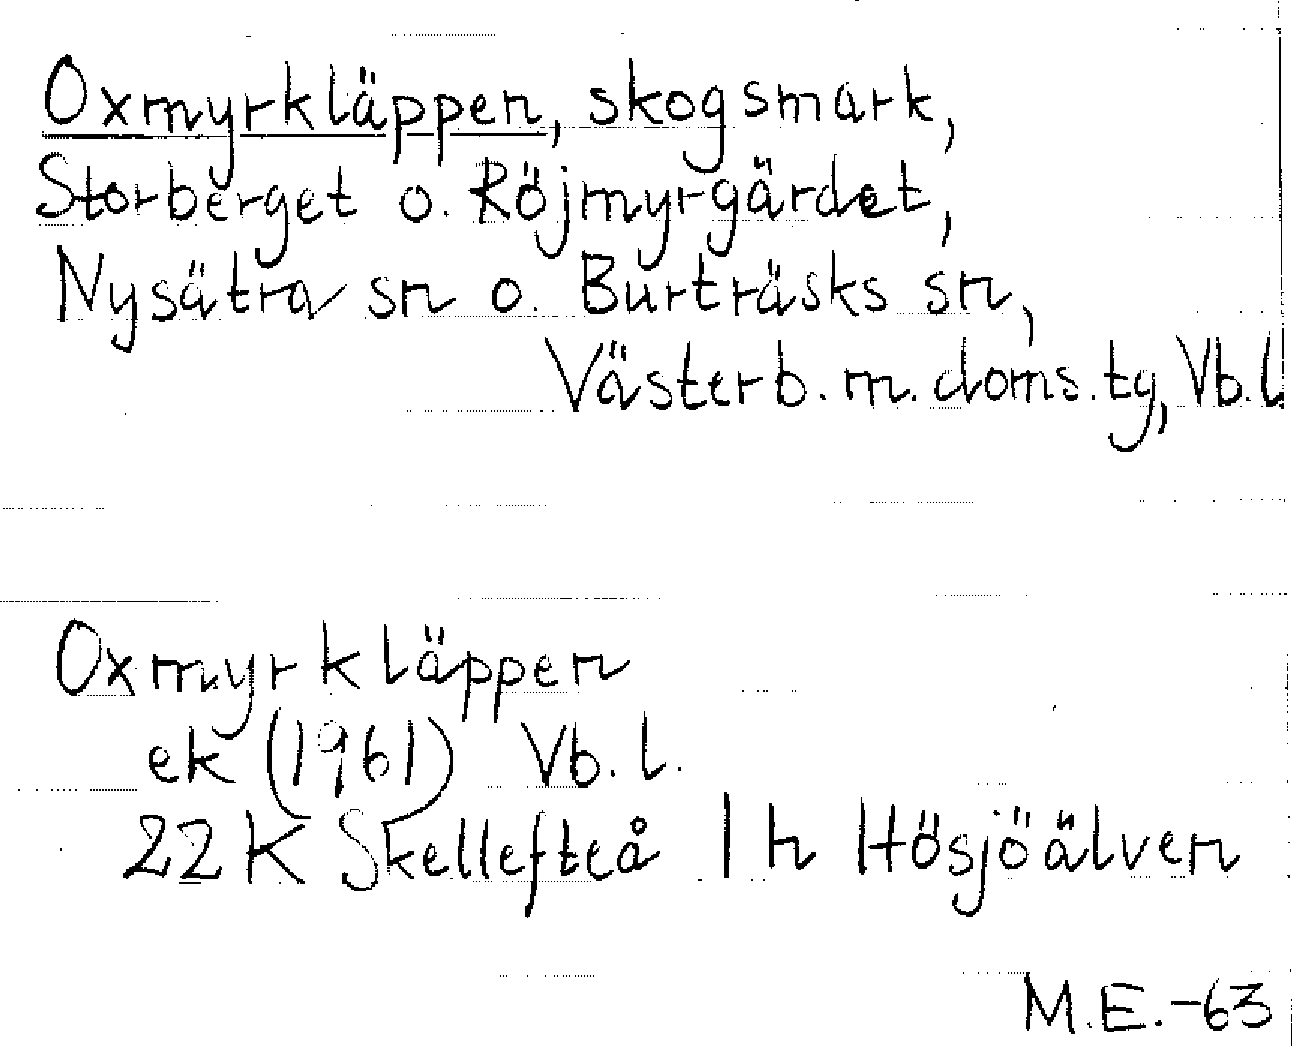 Oxmyrkläppen, skogsmark,
Storberget o. Röjmyrgärdet,
Nysätra sn o. Burträsks sn,
Västerb. m. doms. tg, Vb. l.
Oxmyrkläppen
ek (1961) Vb. l.
22K Skellefteå 1 h Hösjöälven
M.E.-63